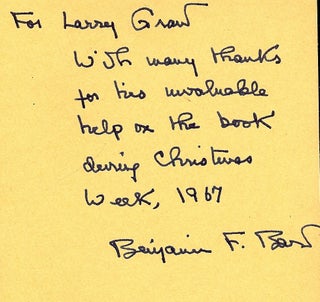 For Larry Graw
With many thanks
for his invaluable
help on the book
during Christmas
Week, 1967
Benjamin F.